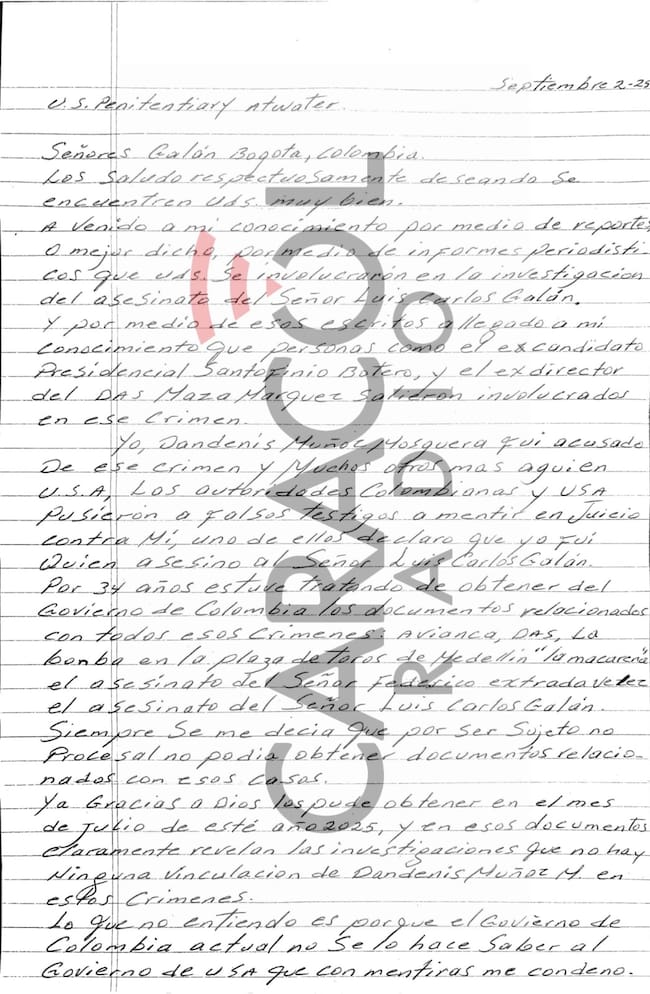 Septiembre 2-25
U.S. Penitentiary Atwater.
Señores Galán Bogota, Colombia.
Los Saludo respectuosamente deseando Se
encuentren Uds. muy bien.
A venido a mi conocimiento por medio de reportes
O mejor dicho, por medio de informes periodisti-
cos que uds. Se involucrarón en la investigacion
del asesinato del Señor Luis Carlos Galán.
Y por medio de esos escritos a llegado a mi
Conocimiento que personas como el excandidato
Presidencial Santofinio Botero, y el exdirector
del DAS Maza Marquez Salieron involucrados
en ese Crimen.
Yo, Dandenis Muñoz Mosquera fui acusado
De ese crimen y Muchos otros mas aquien
U.S.A, Los autoridades Colombianas y USA
Pusieron a Falsos testigos a mentir en Juicio
contra Mi, uno de ellos declaro que yo fui
Quien asesino al Señor Luis Carlos Galán.
Por 34 años estuve tratando de obtener del
Govierno de Colombia los documentos relacionados
con todos esos Crimenes: Avianca, DAS, La
bonba en la plaza de toros de Medellin "la macarena"
el asesinato del Señor Federico extrada velez
el asesinato del Señor Luis Carlos Galán.
Siempre Se me decia que por Ser Sujeto no
Procesal no podia obtener documentos relacio-
nados con esos Casos.
Ya Gracias a Dios los pude obtener en el mes
de Julio de esté año 2025, y en esos documentos
claramente revelan las investigaciones que no hay
Ninguna Vinculacion de Dandenis Muñoz M. en
estos Crimenes.
Lo Que no entiendo es porque el Govierno de
Colombia actual no Se lo hace Saber al
Govierno de USA que con mentiras me condeno.
CARACOL
RADIO